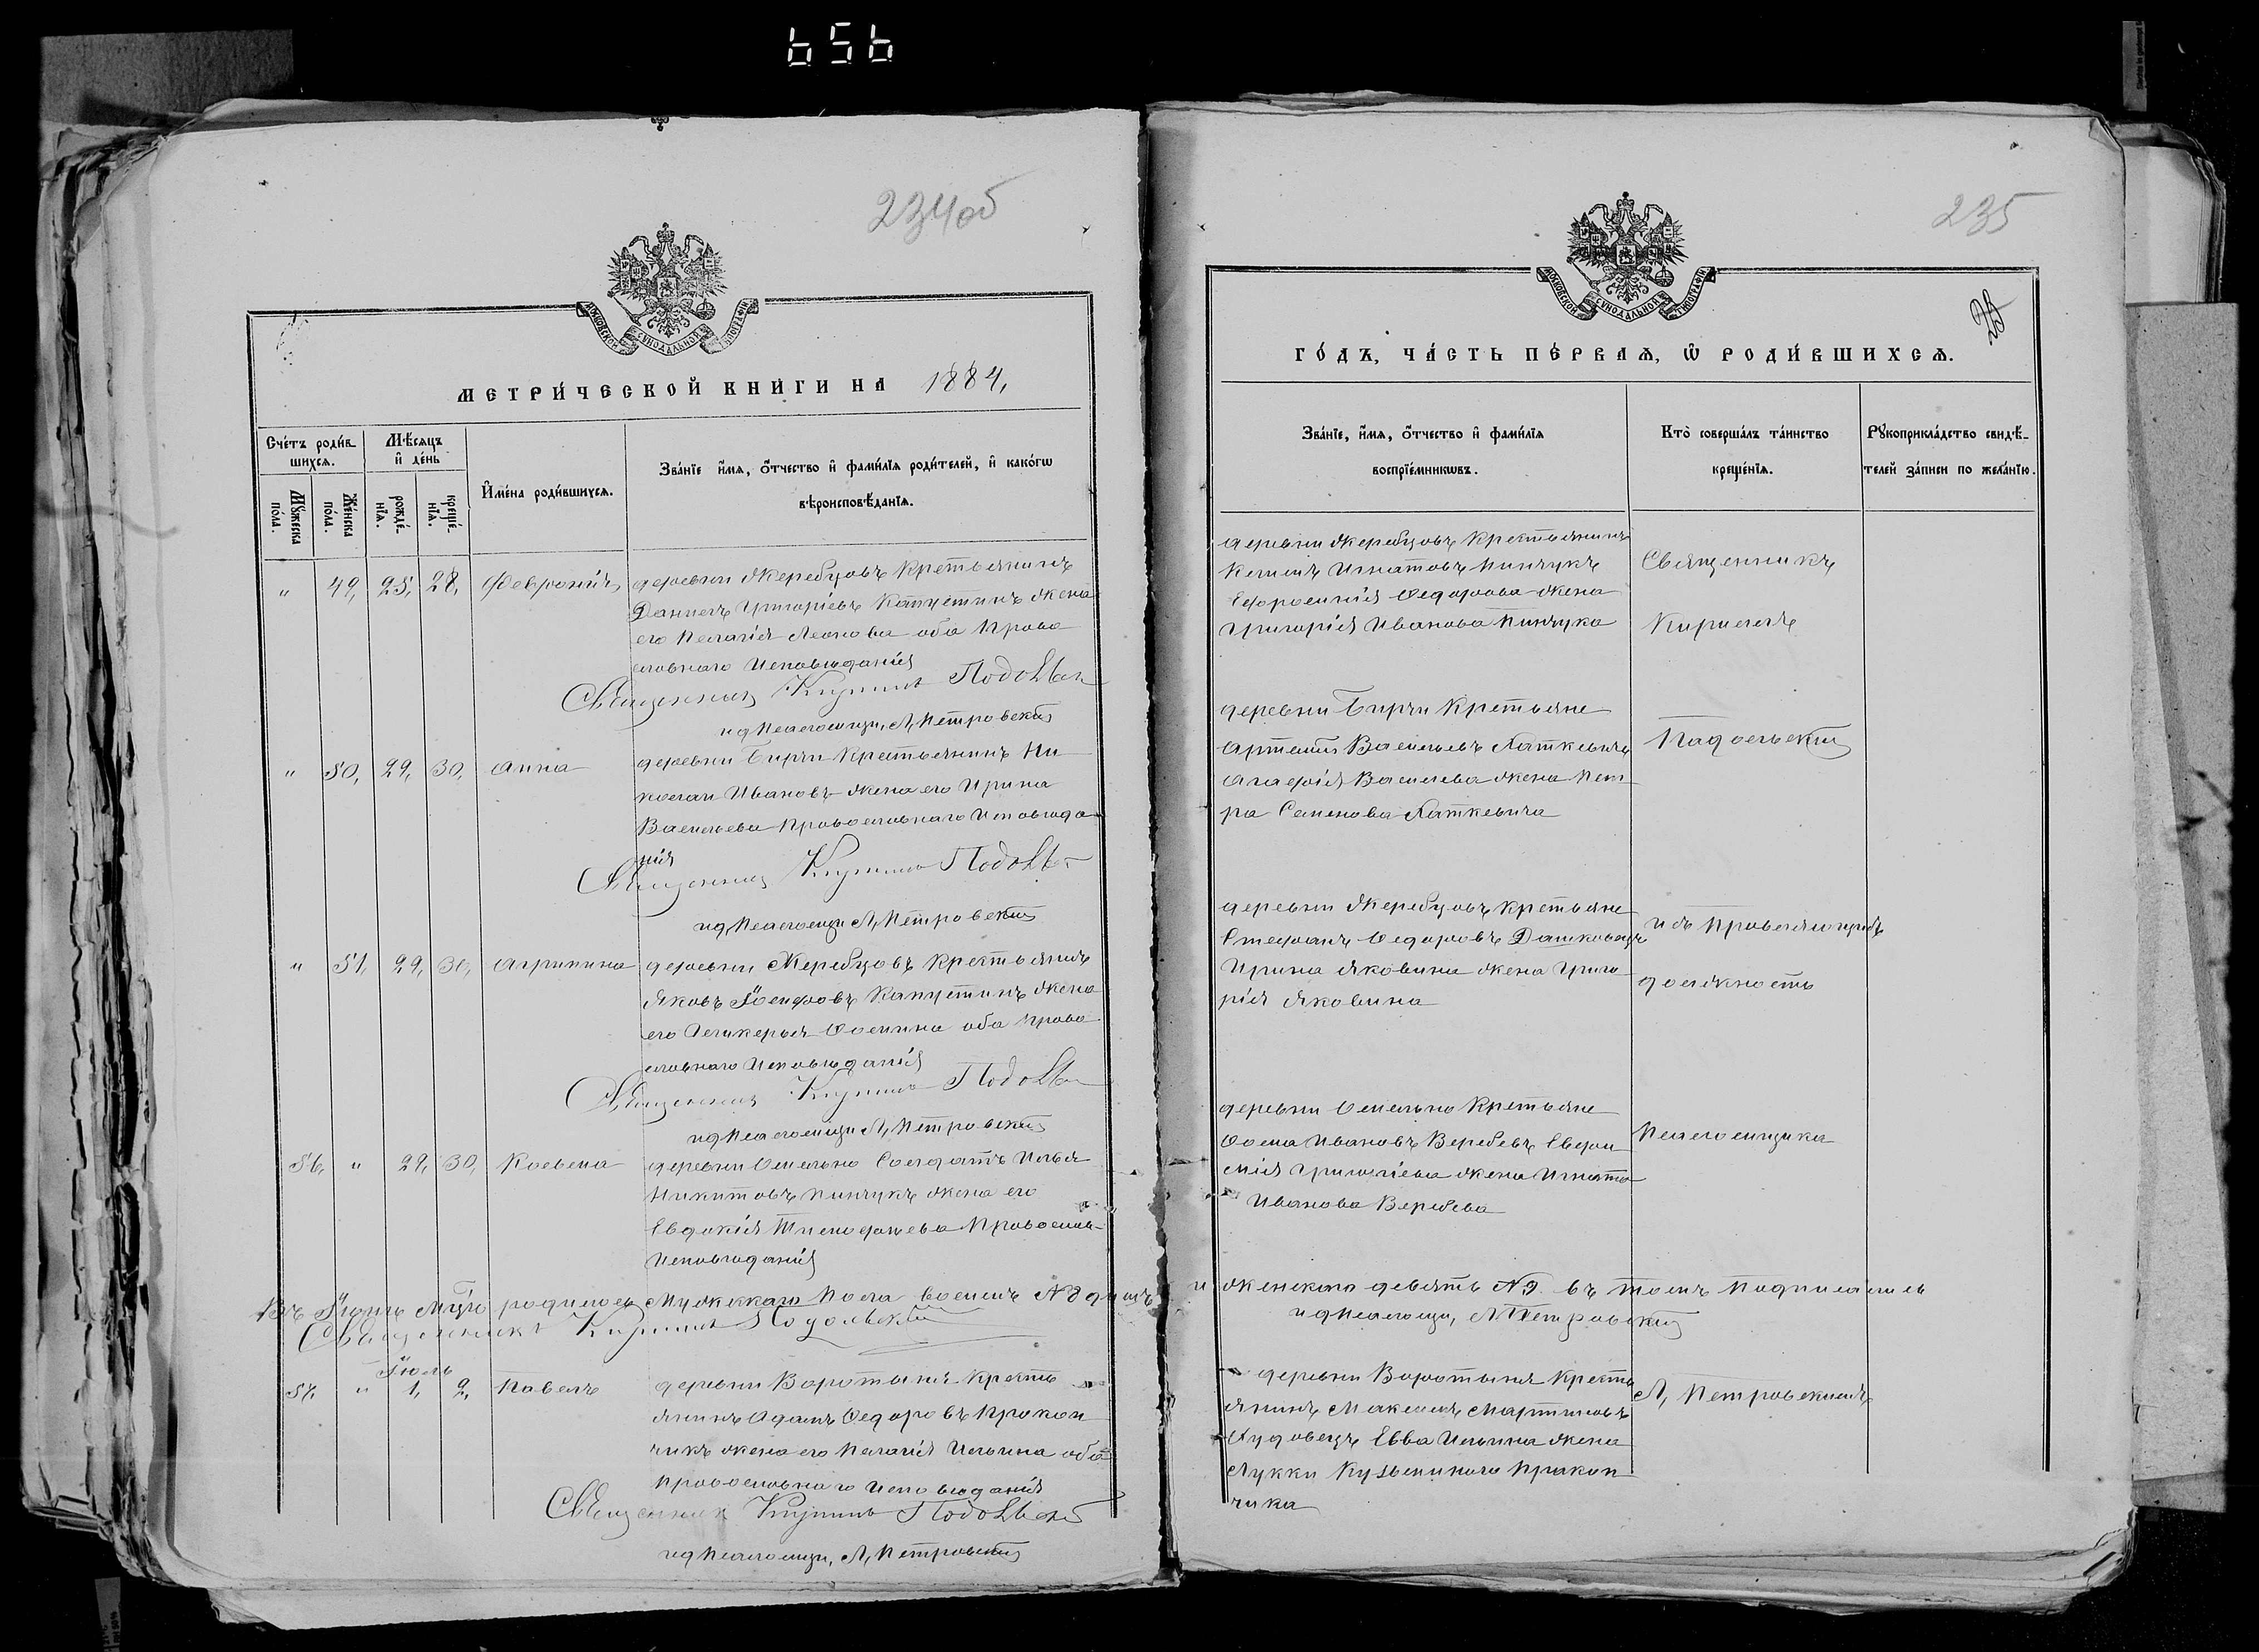 656
234об
МОСКОВСКОЙ СѴНОДАЛЬНОЙ ТИПОГРАФІИ
МЕТРИ́ЧЕСКОЙ КНИ́ГИ НА 1884,
Сче́тъ роди́в-
шихсѧ.
Мѣ́сѧцъ
и҆ де́нь
И҆мена̀ роди́вшихсѧ.
Зва́нїе и҆́мѧ, ѻ҆́тчество и҆ фами́лїѧ роди́телей, и҆ како́гѡ
вѣроисповѣ́данїѧ.
Мꙋ́жеска
по́ла.
Же́нска
по́ла.
рожде́-
нїѧ.
креще́-
нїѧ.
" 49, 25, 28, Февронія деревни Жеребцовъ Крестьянинъ
Даніилъ Григоріевъ Капустинъ жена
его Пелагія Леонова оба Право
славнаго Исповѣданія
Священникъ Кириллъ Подольскій
ид Псаломщ, Л, Петровскій
" 50, 29, 30, Анна деревни Бирчи Крестьянинъ Ни
колай Ивановъ жена его Ирина
Васильева Православнаго Исповѣда
нія
Священникъ Кириллъ Подольскій
ид Псаломщ Л, Петровскій
" 51, 29, 30, Агрипина деревни Жеребцовъ Крестьянинъ
Яковъ Іосифовъ Капустинъ жена
его Гликерья Фомина оба Право
славнаго Исповѣданія
Священникъ Кириллъ Подольскій
ид Псаломщ Л, Петровскій
56, " 29, 30, Косьма деревни Осмольно Солдатъ Илья
Никитовъ Пинчукъ жена его
Евдокія Тимофеева Православ
Исповѣданія
Въ Іюнѣ мцѣ родилось Мужескаго Пола восемь №8 душъ
Священникъ Кириллъ Подольскій
Іюль
57, " 1, 2, Павелъ деревни Воротыня Кресть
янинъ Адамъ Федоровъ Прокоп
чикъ жена его Пелагія Ильина оба
Православнаго Исповѣданія
Священникъ Кириллъ Подольскій
ид Псаломщ, Л, Петровскій
235
МОСКОВСКОЙ СѴНОДАЛЬНОЙ ТИПОГРАФІИ
ГО́ДЪ, ЧА́СТЬ ПЕ́РВАѦ, Ѡ҆ РОДИ́ВШИХСѦ.
Зва́нїе, и҆́мѧ, ѻ҆́тчество и҆ фами́лїѧ
воспрїе́мникѡвъ.
Кто̀ соверша́лъ та́инство
креще́нїѧ.
Рꙋкоприкла́дство свидѣ́-
телей за́писи по жела́нїю.
деревни Жеребцовъ Крестьянинъ
Климъ Игнатовъ Пинчукъ
Ефросинія Федорова жена
Григорія Иванова Пинчука
Священникъ
Кириллъ
деревни Бирчи Крестьяне
Артемій Васильевъ Латкевичъ
Агафія Васильева жена Пет
ра Семенова Латкевича
Подольскій
деревни Жеребцовъ Крестьяне
Стефанъ Федоровъ Дашковецъ
Ирина Яковина жена Григо
рія Яковина
исправляющій
должность
деревни Осмольно Крестьяне
Фома Ивановъ Веребевъ Евфи
мія Григоріева жена Игната
Иванова Веребева
Псаломщика
и женскаго девять №9. въ томъ Подписались
ид Псаломщ, Л Петровскій
деревни Воротыня Кресть
янинъ Максимъ Мартиновъ
Худовецъ Евва Ильина жена
Лукки Кузьминаго Прокоп
чика
Л, Петровскимъ